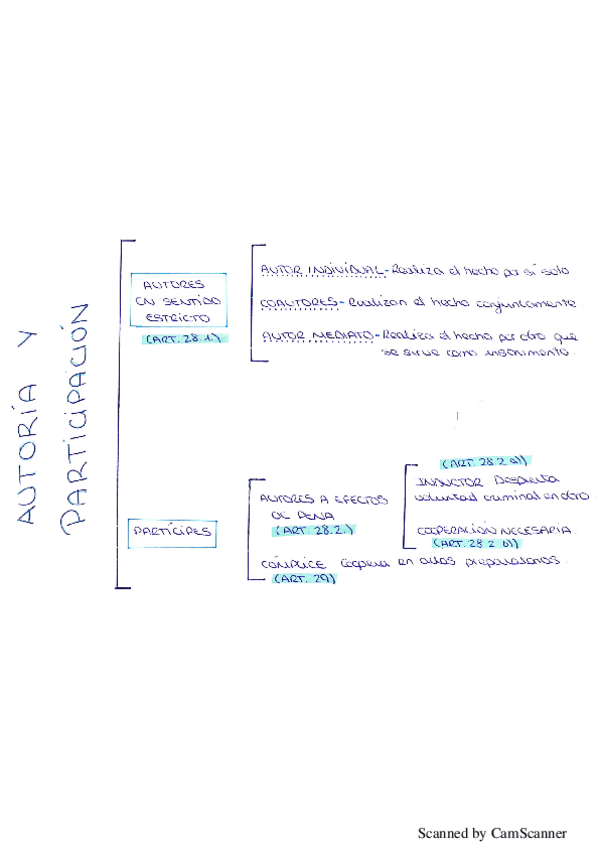 AUTORÍA Y
PARTICIPACIÓN
AUTORES
EN SENTIDO
ESTRICTO
(ART. 28.1.)
AUTOR INDIVIDUAL - Realiza el hecho por sí solo
COAUTORES - Realizan el hecho conjuntamente
AUTOR MEDIATO - Realiza el hecho por otro que
se sirve como instrumento
PARTÍCIPES
AUTORES A EFECTOS
DE PENA
(ART. 28.2.)
(ART. 28 2 a))
INDUCTOR Despierta
voluntad criminal en otro
COOPERACIÓN NECESARIA
(ART. 28 2 b))
CÓMPLICE Coopera en actos preparatorios.
(ART. 29)
Scanned by CamScanner